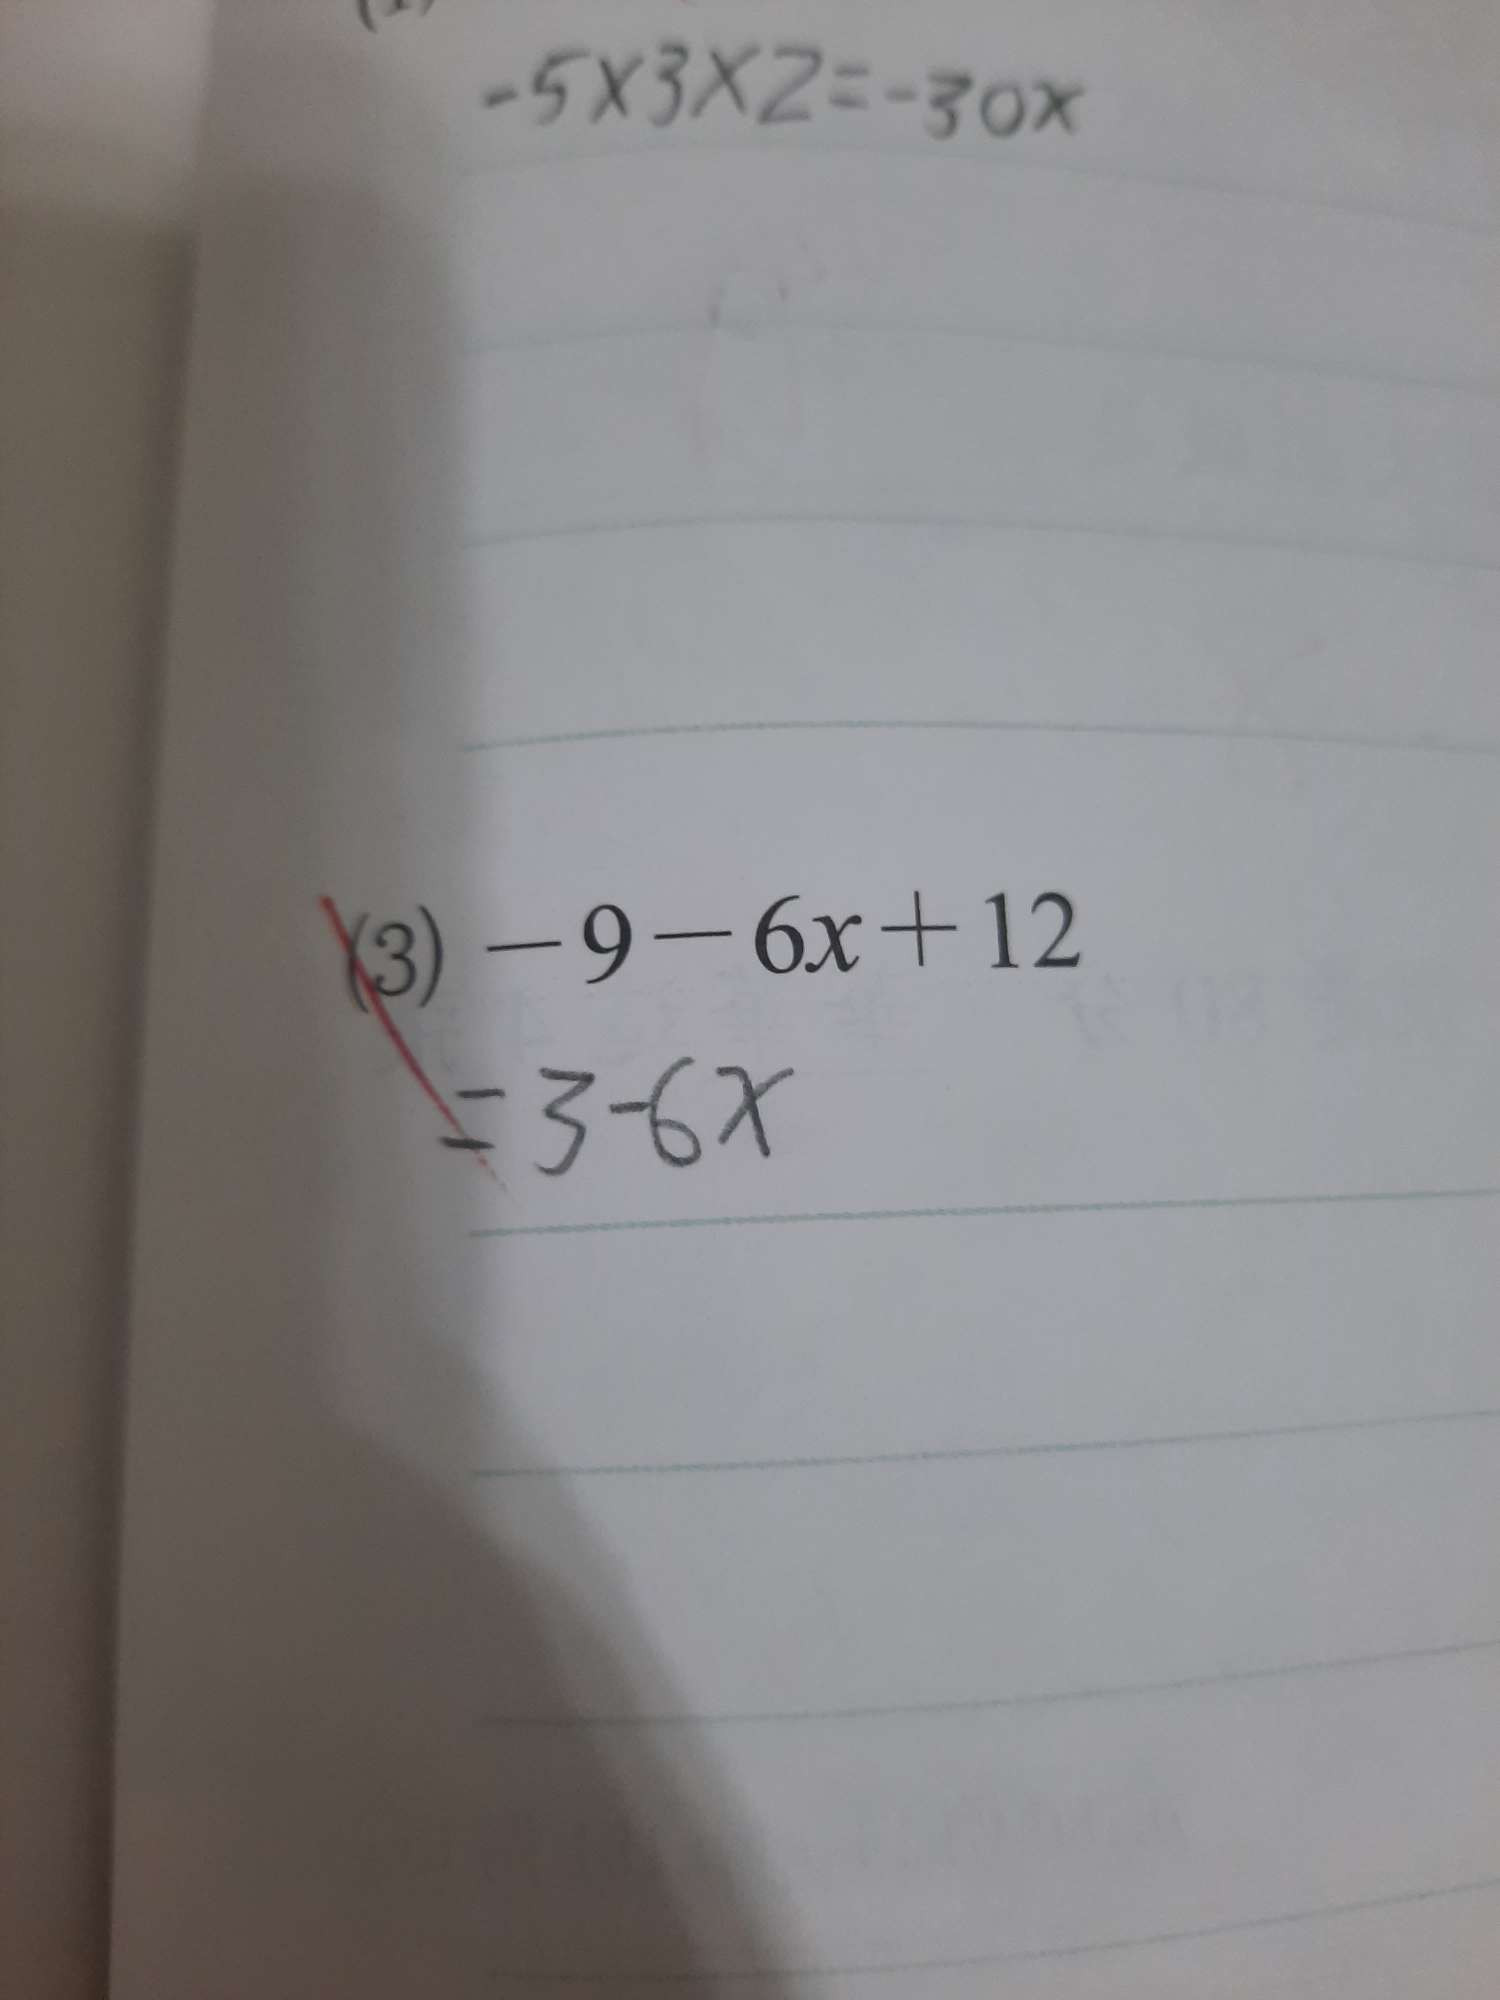 -5x3x2=-30x
(3) －9－6x＋12
=3-6x